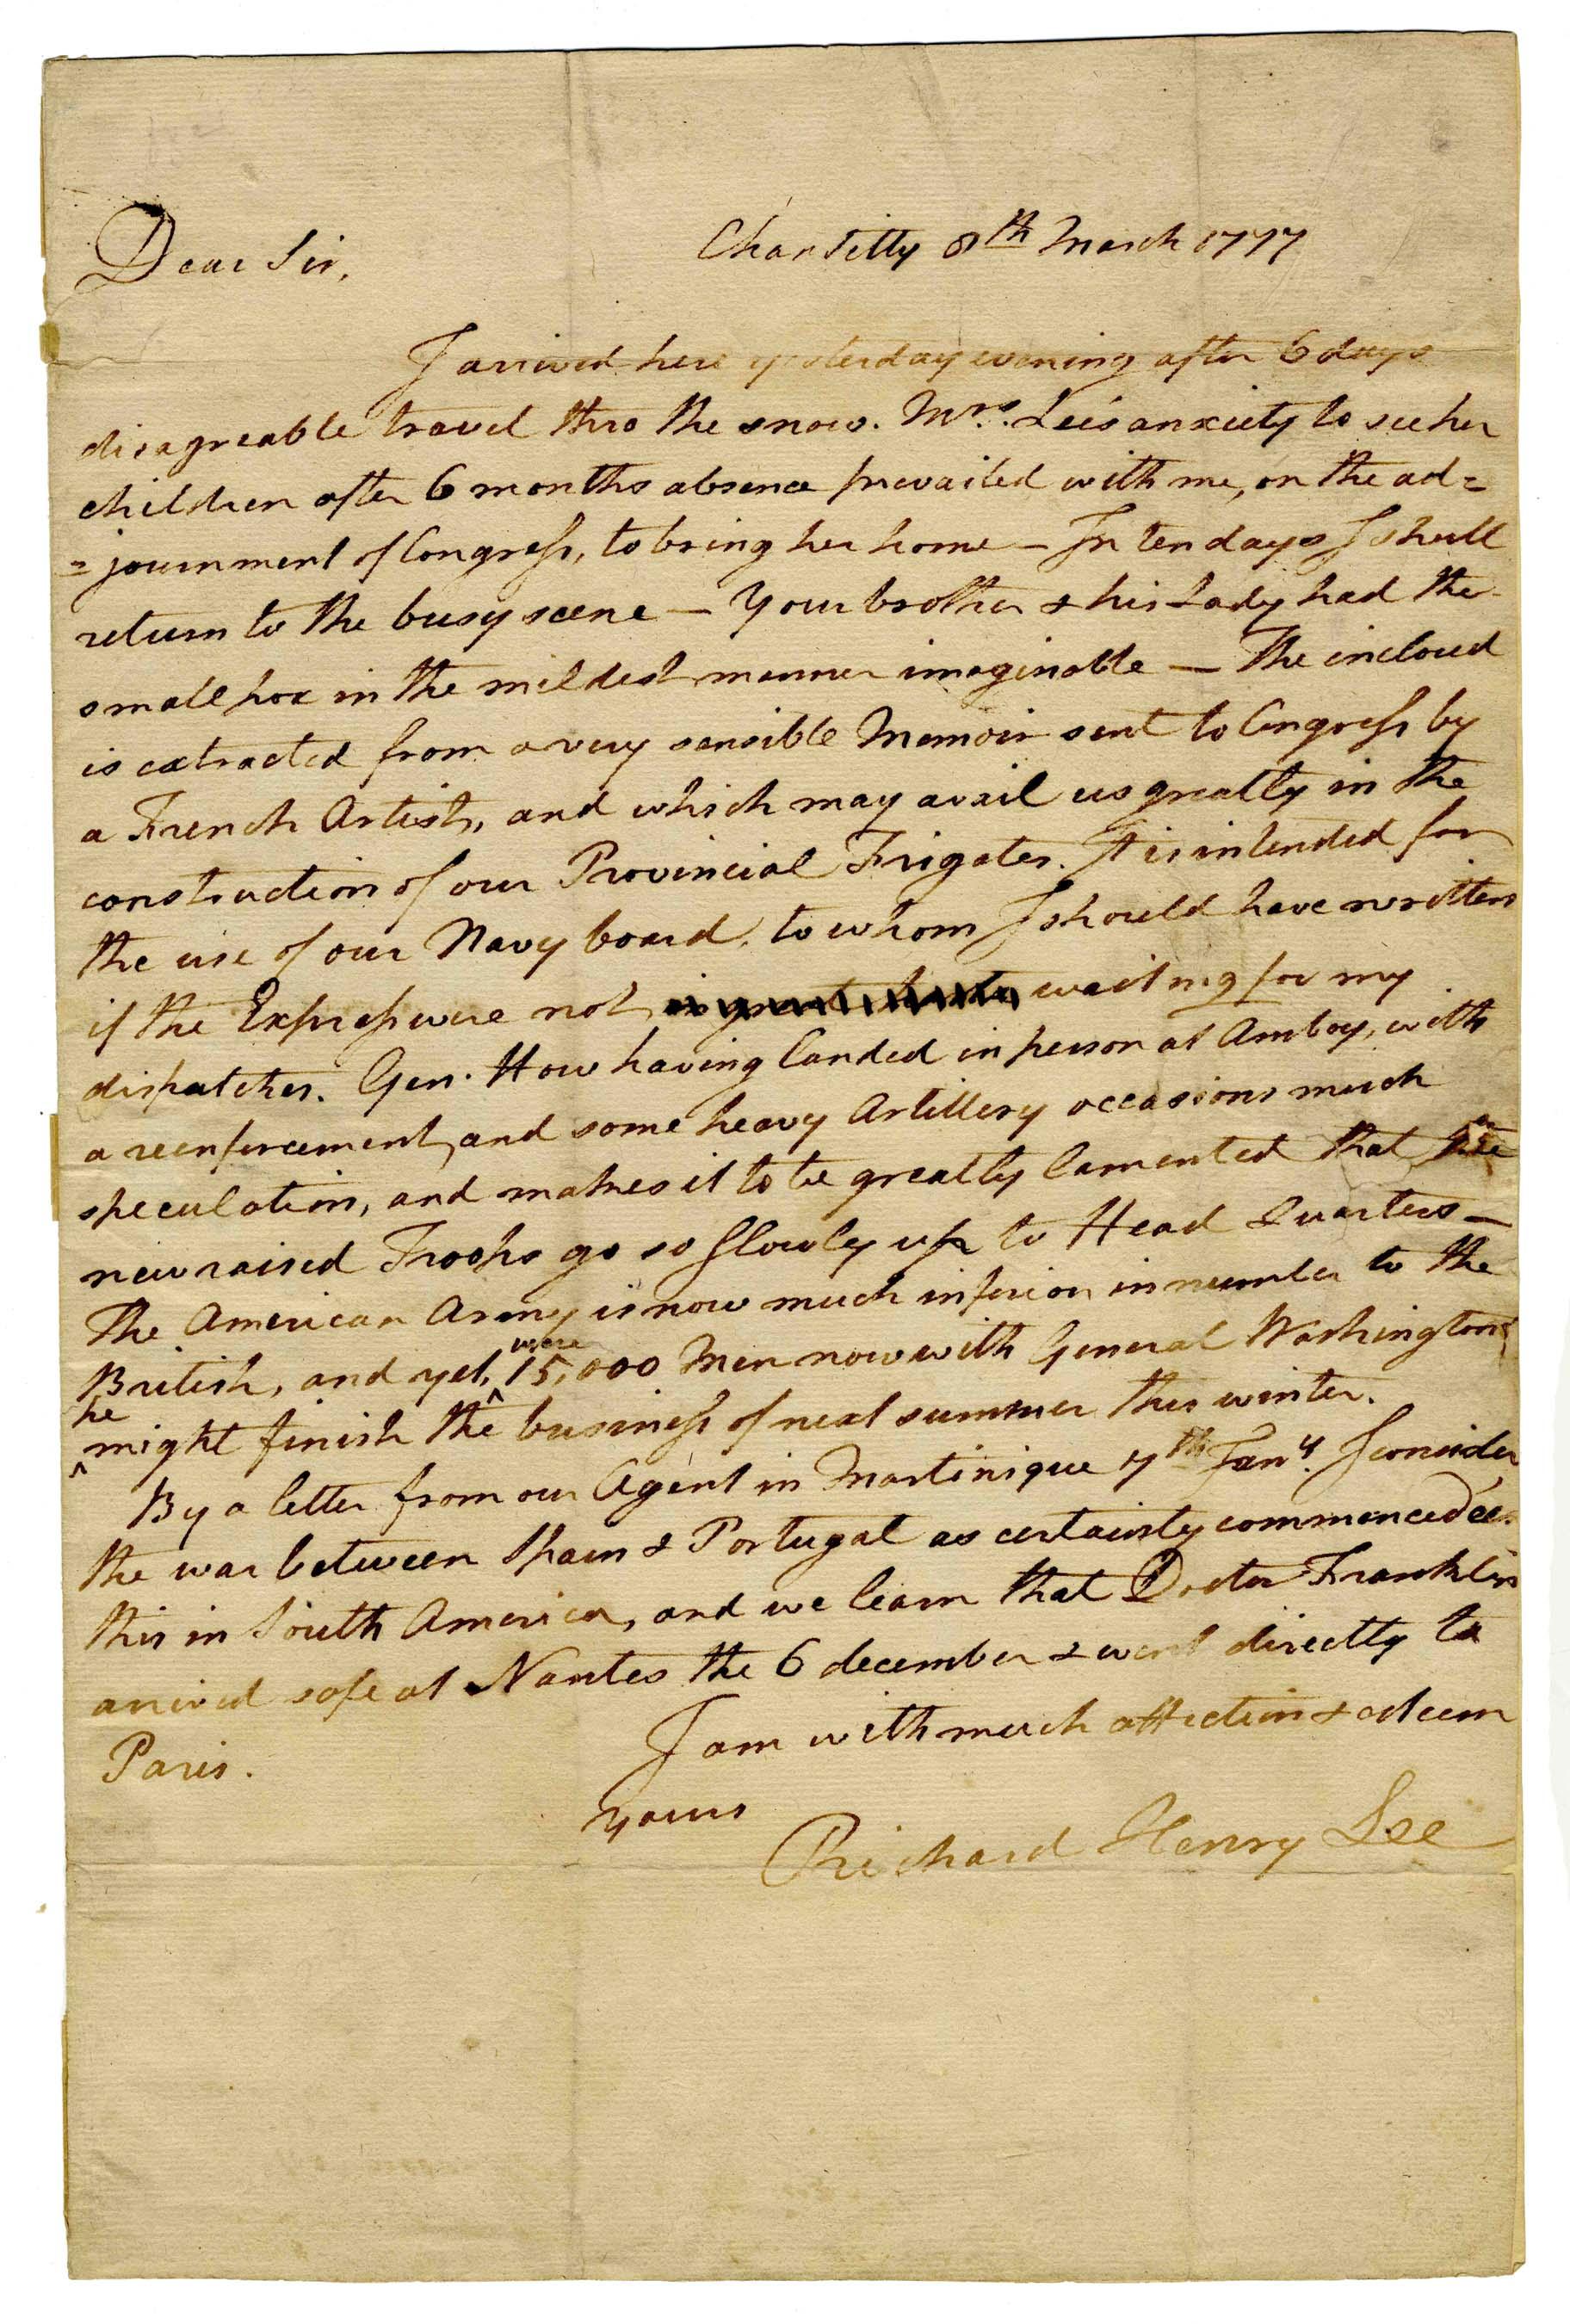 Dear Sir,
Chantilly 8th March 1777
I arrived here yesterday evening after 6 days
disagreable travel thro the snow. Mrs. Lee's anxiety to see her
children after 6 months absence prevailed with me, on the ad=
=journment of Congress, to bring her home – In ten days I shall
return to the busy scene – Your brother & his Lady had the
small pox in the mildest manner imaginable – The inclosed
is extracted from a very sensible Memoir sent to Congress by
a French Artist, and which may avail us greatly in the
construction of our Provincial Frigates. It is intended for
the use of our Navy board, to whom I should have written
if the Express were not in great haste waiting for my
dispatches. Gen. How having landed in person at Amboy, with
a reenforcement, and some heavy Artillery occasions much
speculation, and makes it to be greatly lamented that
new raised Troops go so slowly up to Head Quarters –
The American Army is now much inferior in number to the
British, and yet, were 15,000 Men now with General Washington
he might finish the business of next summer this winter.
By a letter from our Agent in Martinique 7th Jany. I consider
the war between Spain & Portugal as certainly commenced
this in South America, and we learn that Doctor Franklin
arrived safe at Nantes the 6 december & went directly to
Paris.
I am with much affection & esteem
yours
Richard Henry Lee